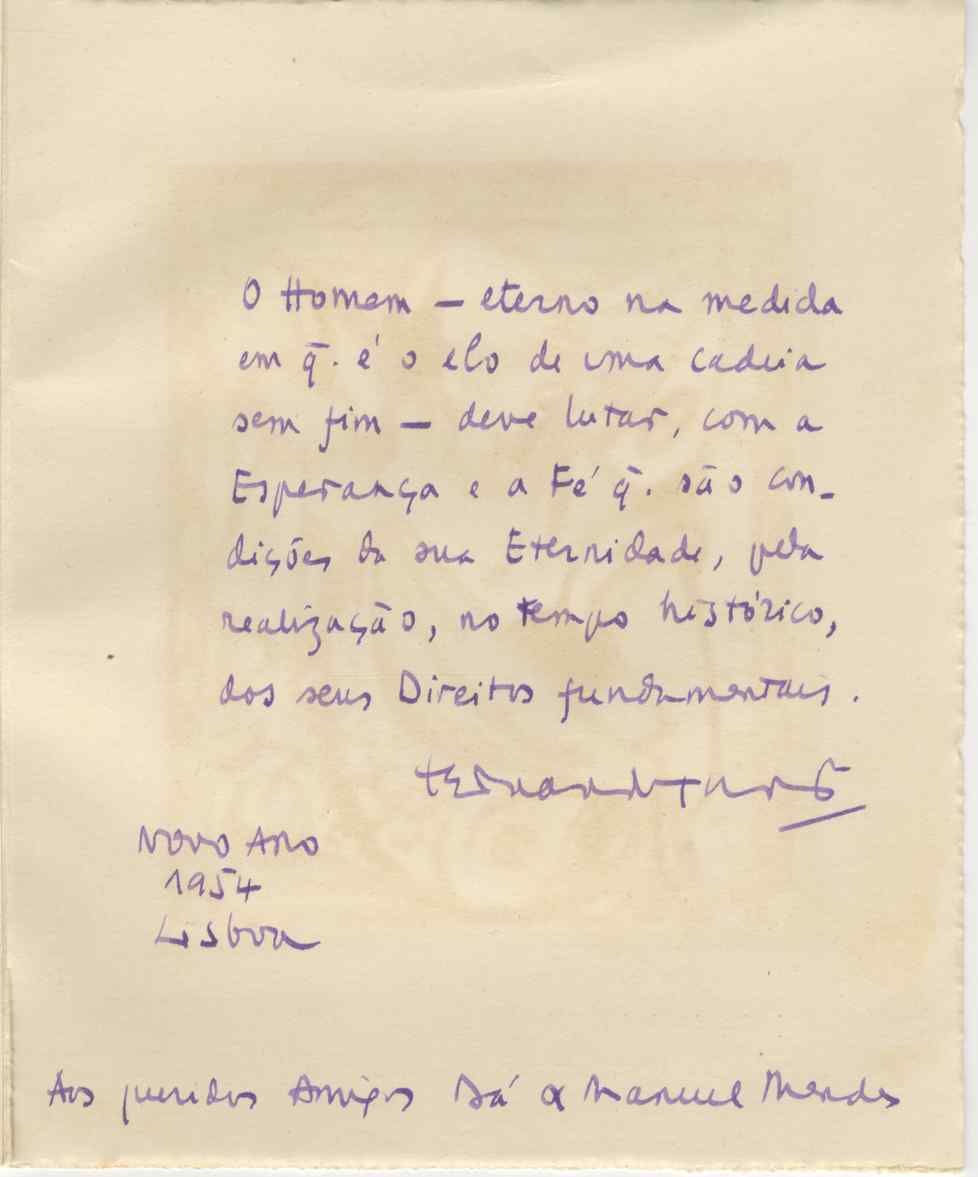 O Homem — eterno na medida
em q̄. é o elo de uma cadeia
sem fim — deve lutar, com a
Esperança e a Fé q̄. são con-
dições da sua Eternidade, pela
realização, no tempo histórico,
dos seus Direitos fundamentais.
Novo Ano
1954
Lisboa
Aos queridos Amigos Bá & Manuel Mendes